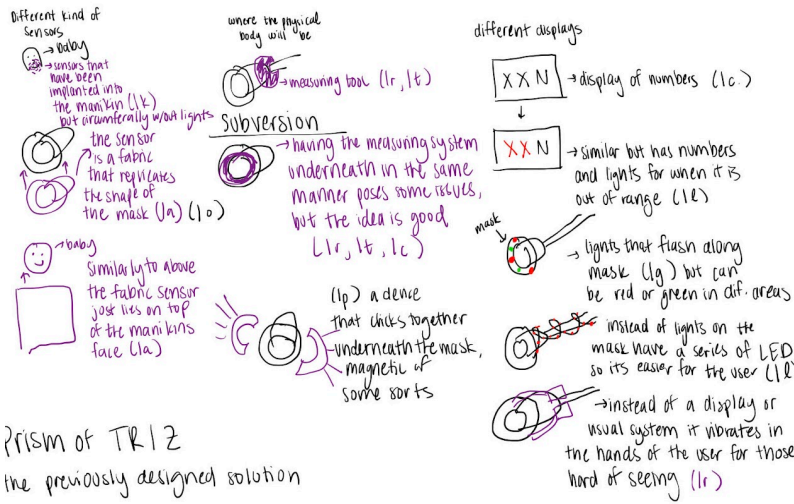 Different kind of
Sensors
baby
sensors that
have been
implanted into
the manikin (1k)
but circumferally w/out lights
the sensor
is a fabric
that replicates
the shape of
the mask (1a) (1o)
baby
Similarly to above
the fabric sensor
just lies on top
of the manikins
face (1a)
Prism of TRIZ
the previously designed solution
where the physical
body will be
measuring tool (1r, 1t)
Subversion
having the measuring system
underneath in the same
manner poses some issues,
but the idea is good
(1r, 1t, 1c)
(1p) a dence
that clicks together
underneath the mask,
magnetic of
some sorts
different displays
XXN
display of numbers (1c.)
XXN
similar but has numbers
and lights for when it is
out of range (1l)
mask
lights that flash along
mask (1g) but can
be red or green in dif. areas
instead of lights on the
mask have a series of LED
so its easier for the user (1l)
instead of a display or
usual system it vibrates in
the hands of the user for those
hard of seeing (1r)